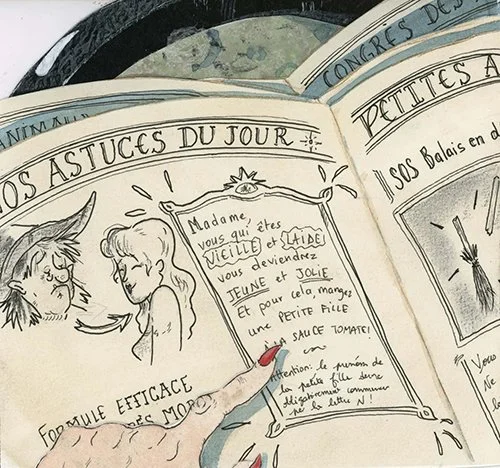 CONGRÈS DES
ANIMAU
NOS ASTUCES DU JOUR
Madame,
vous qui êtes
VIEILLE et LAIDE
vous deviendrez
JEUNE et JOLIE
Et pour cela, mangez
une PETITE FILLE
À LA SAUCE TOMATE!
Attention: le prénom de
la petite fille devra
obligatoirement commencer
par la lettre N!
FORMULE EFFICACE
DÈS MO
PETITES A
SOS Balais en d
Vous
Ne